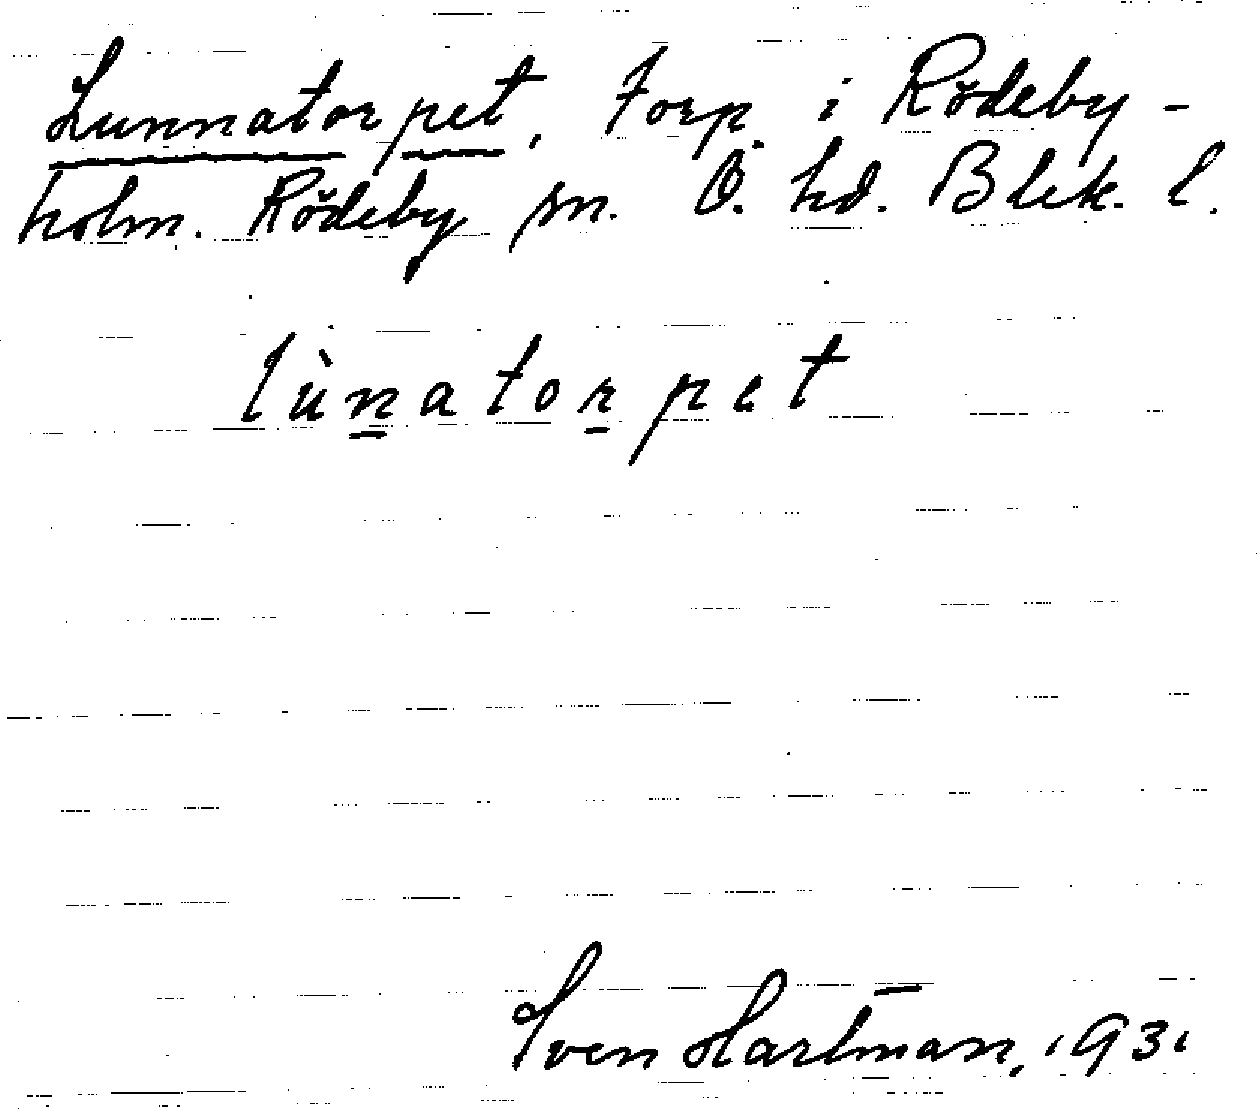 Lunnatorpet, Torp. i Rödeby-
holm. Rödeby sn. Ö. hd. Blek. l.
lùnatorpet
Sven Hartman, 1931